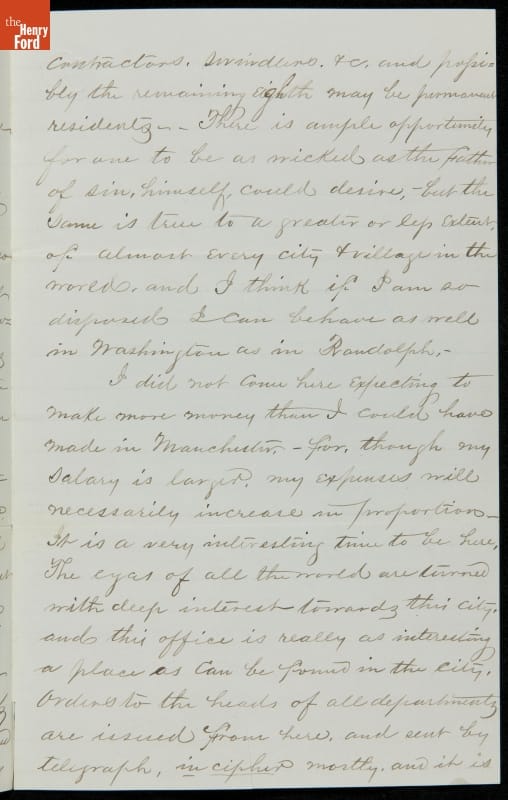 the
Henry
Ford
contractors. swindlers. &c. and possi-
bly the remaining eighth may be permanent
residents. - There is ample opportunity
for one to be as wicked as the Father
of sin, himself, could desire, - but the
same is true to a greater or less extent,
of almost every city & village in the
world, and I think if I am so
disposed I can behave as well
in Washington as in Randolph. -
I did not come here expecting to
make more money than I could have
made in Manchester, - for, though my
salary is larger, my expenses will
necessarily increase in proportion -
It is a very interesting time to be here.
The eyes of all the world are turned
with deep interest towards this city,
and this office is really as interesting
a place as can be found in the city.
Orders to the heads of all departments
are issued from here, and sent by
telegraph, in cipher mostly, and it is